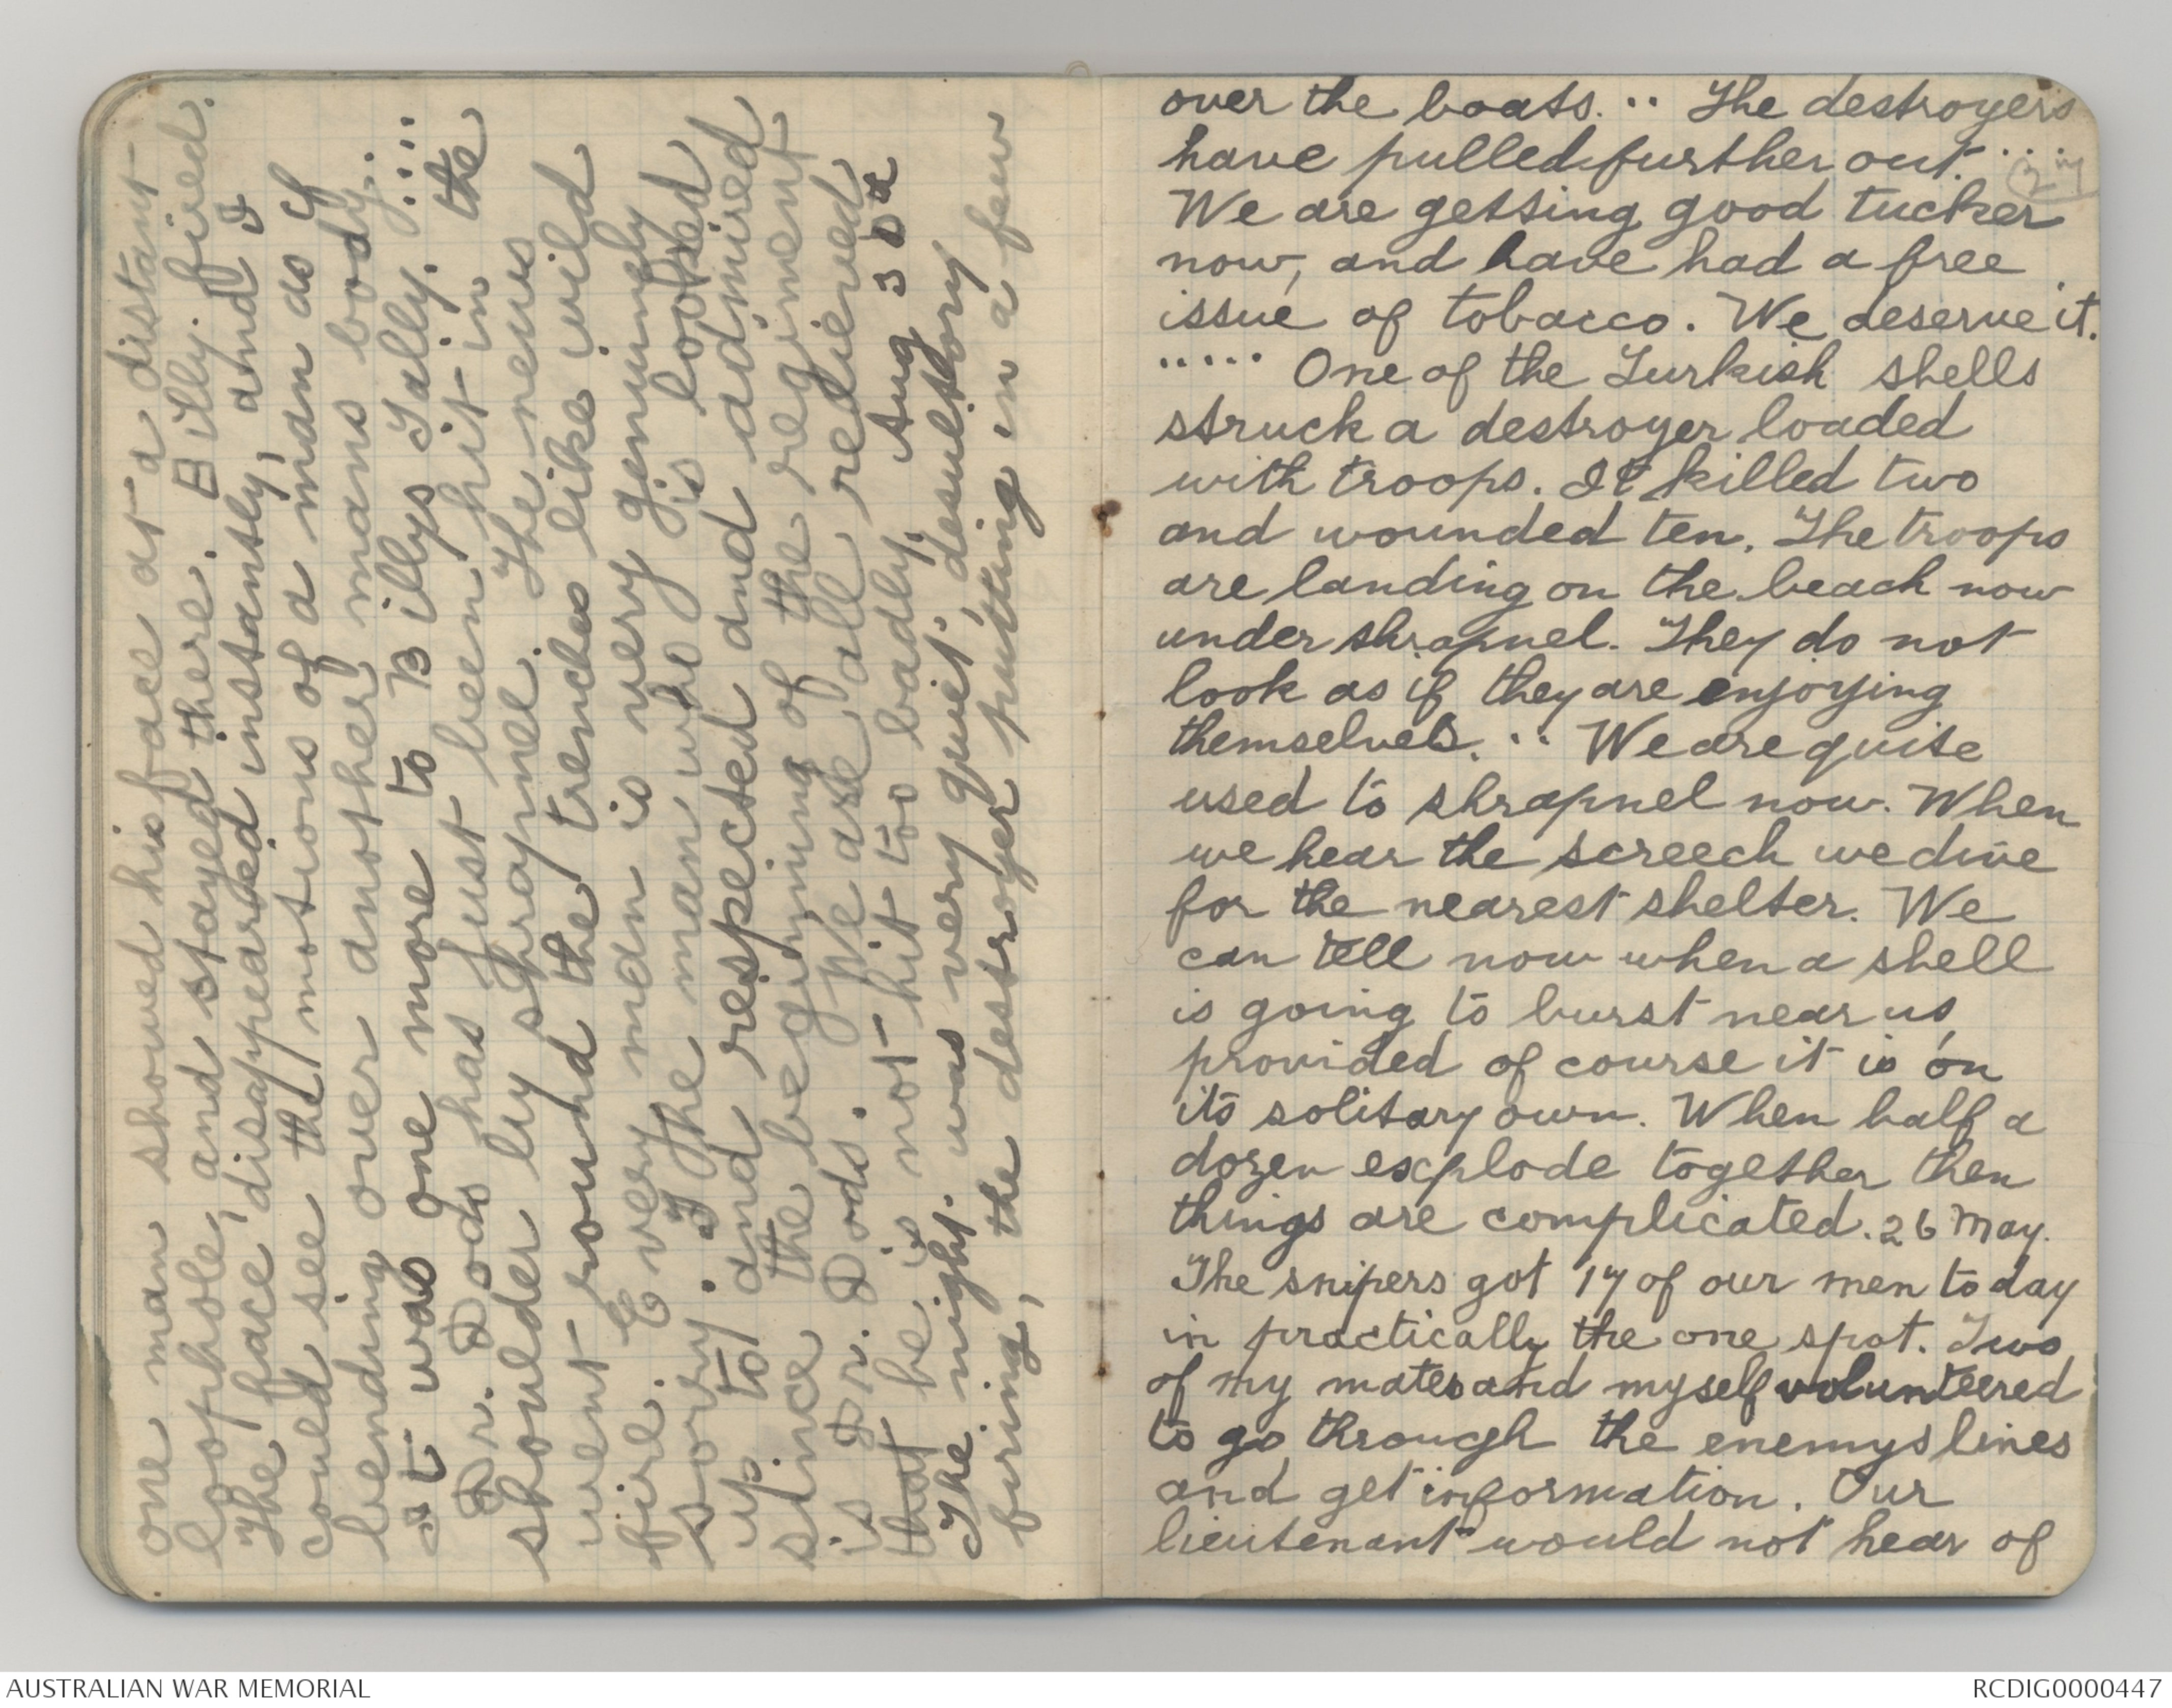 one man showed his face at a distant
loophole, and stayed there. Billy fired.
The face disappeared instantly, and I
could see the motions of a man as if
bending over another mans body....
It was one more to Billys Tally. ....
Dr. Dods has just been hit in the
shoulder by shrapnel. The news
went round the trenches like wild
fire. Every man is very genuinely
sorry. The man who is looked
up to and respected and admired
since the beginning of the regiment
is Dr. Dods. We are all relieved
that he is not hit too badly. Aug 3rd
The night was very quiet, desultory
firing, the destroyer putting in a few
over the boats. .. The destroyers
have pulled further out. ...
We are getting good tucker
now, and have had a free
issue of tobacco. We deserve it.
..... One of the Turkish shells
struck a destroyer loaded
with troops. It killed two
and wounded ten. The troops
are landing on the beach now
under shrapnel. They do not
look as if they are enjoying
themselves. .. We are quite
used to shrapnel now. When
we hear the screech we dive
for the nearest shelter. We
can tell now when a shell
is going to burst near us,
provided of course it is on
its solitary own. When half a
dozen explode together then
things are complicated. 26 May.
The snipers got 17 of our men today
in practically the one spot. Two
of my mates and myself volunteered
to go through the enemys lines
and get information. Our
lieutenant would not hear of
AUSTRALIAN WAR MEMORIAL
RCDIG0000447